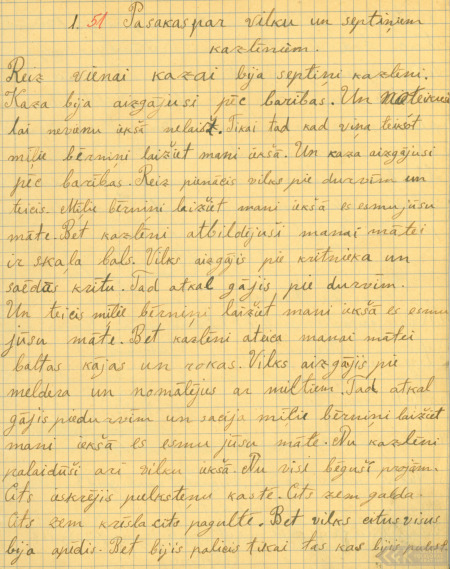 1. 51 Pasakas par vilku un septiņiem
kazlēniem.
Reiz vienai kazai bija septiņi kazlēni.
Kaza bija aizgājusi pēc barības. Un noteikusi
lai nevienu iekšā nelaiž. Tikai tad kad viņa teikšot
mīlie bērniņi laižiet mani iekšā. Un kaza aizgājusi
pēc barības. Reiz pienācis vilks pie durvīm un
teicis. Mīļie bērniņi laižiet mani iekšā es esmu jūsu
māte. Bet kazlēni atbildējuši manai mātei
ir skaļa bals. Vilks aizgājis pie kritnieka un
saēdūs krītu. Tad atkal gājis pie durvīm.
Un teicis mīlie bērniņi laižiet mani iekšā es esmu
jūsu māte. Bet kazlēni ateica manai mātei
baltas kājas un rokas. Vilks aizgājis pie
meldera un nomālējus ar miltiem. Tad atkal
gājis piedurvīm un sacija mīlie bērniņi laižiet
mani iekšā es esmu jūsu māte. Nu kazlēni
palaiduši arī vilku iekšā. Nu visi bēguši projām.
Cits ieskrējis pulksteņu kastē. Cits zem galda.
Cits zem krēsla cits pagultē. Bet vilks citus visus
bija apēdis. Bet bijis palicis tikai tas kas bijis pulkst.